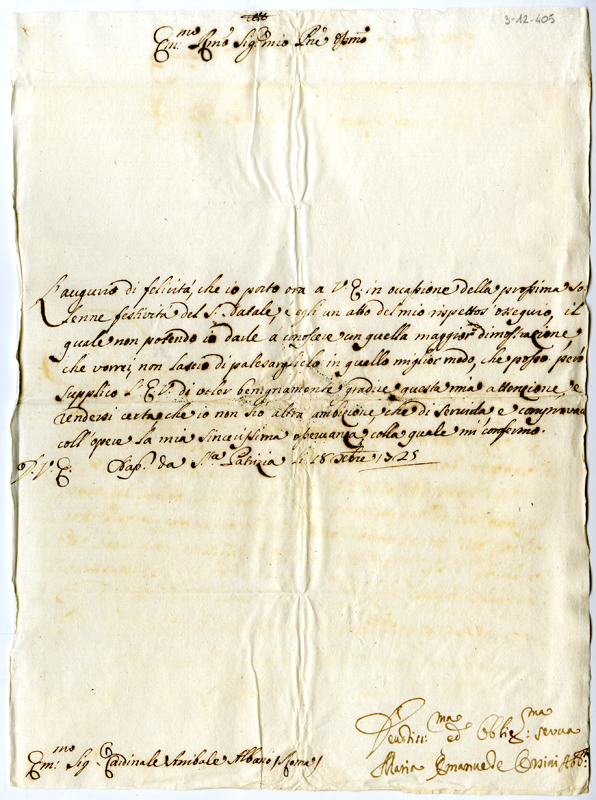 3-12-405
Em:mo Rmo Sig.re mio Pne Colmo
L'augurio di felicità, che io porto ora a V. E: in occasione della prossima So-
lenne festività del S. Natale, è egli un atto del mio rispettoso ossequio, il
quale non potendo io darle a conoscere con quella maggior dimostrazione,
che vorrei, non lascio di palesarglielo in quello miglior modo, che posso; però
supplico l'E. V. di voler benignamente gradire questa mia attenzione, e
rendersi certa che io non ho altra ambizione che di servirla e comprovar
coll'opere la mia sincerissima osservanza, colla quale mi confermo.
D. V. E: Nap. da S.ta Patrizia li 18 Xbre 1725
Devotiss:ma ed Obblig:ma serva
Maria Emanuele Orsini Abb.
Em:mo Sig.r Cardinale Annibale Albano / Roma /